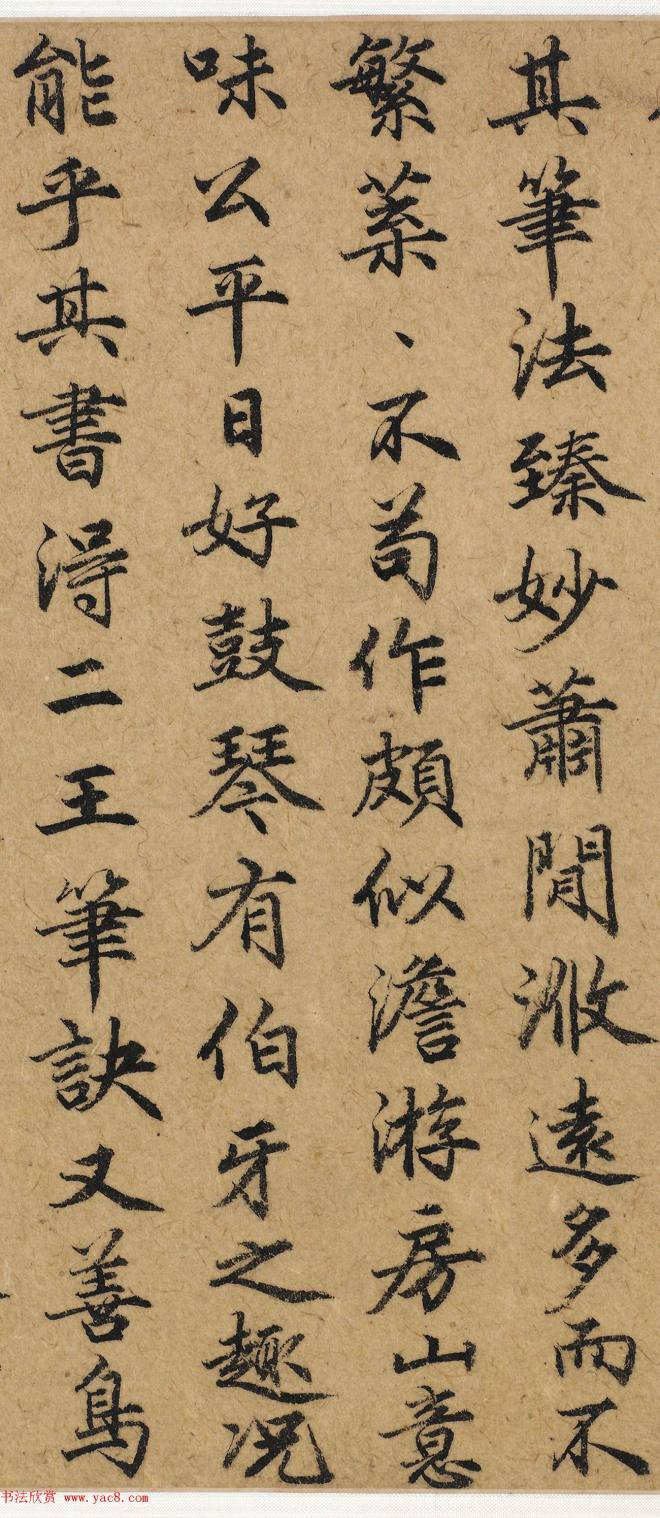 其筆法臻妙蕭閒淡遠多而不
繁葉、不苟作頗似澹游房山意
味公平日好鼓琴有伯牙之趣況
能乎其書得二王筆訣又善鳥
书法欣赏 www.yac8.com